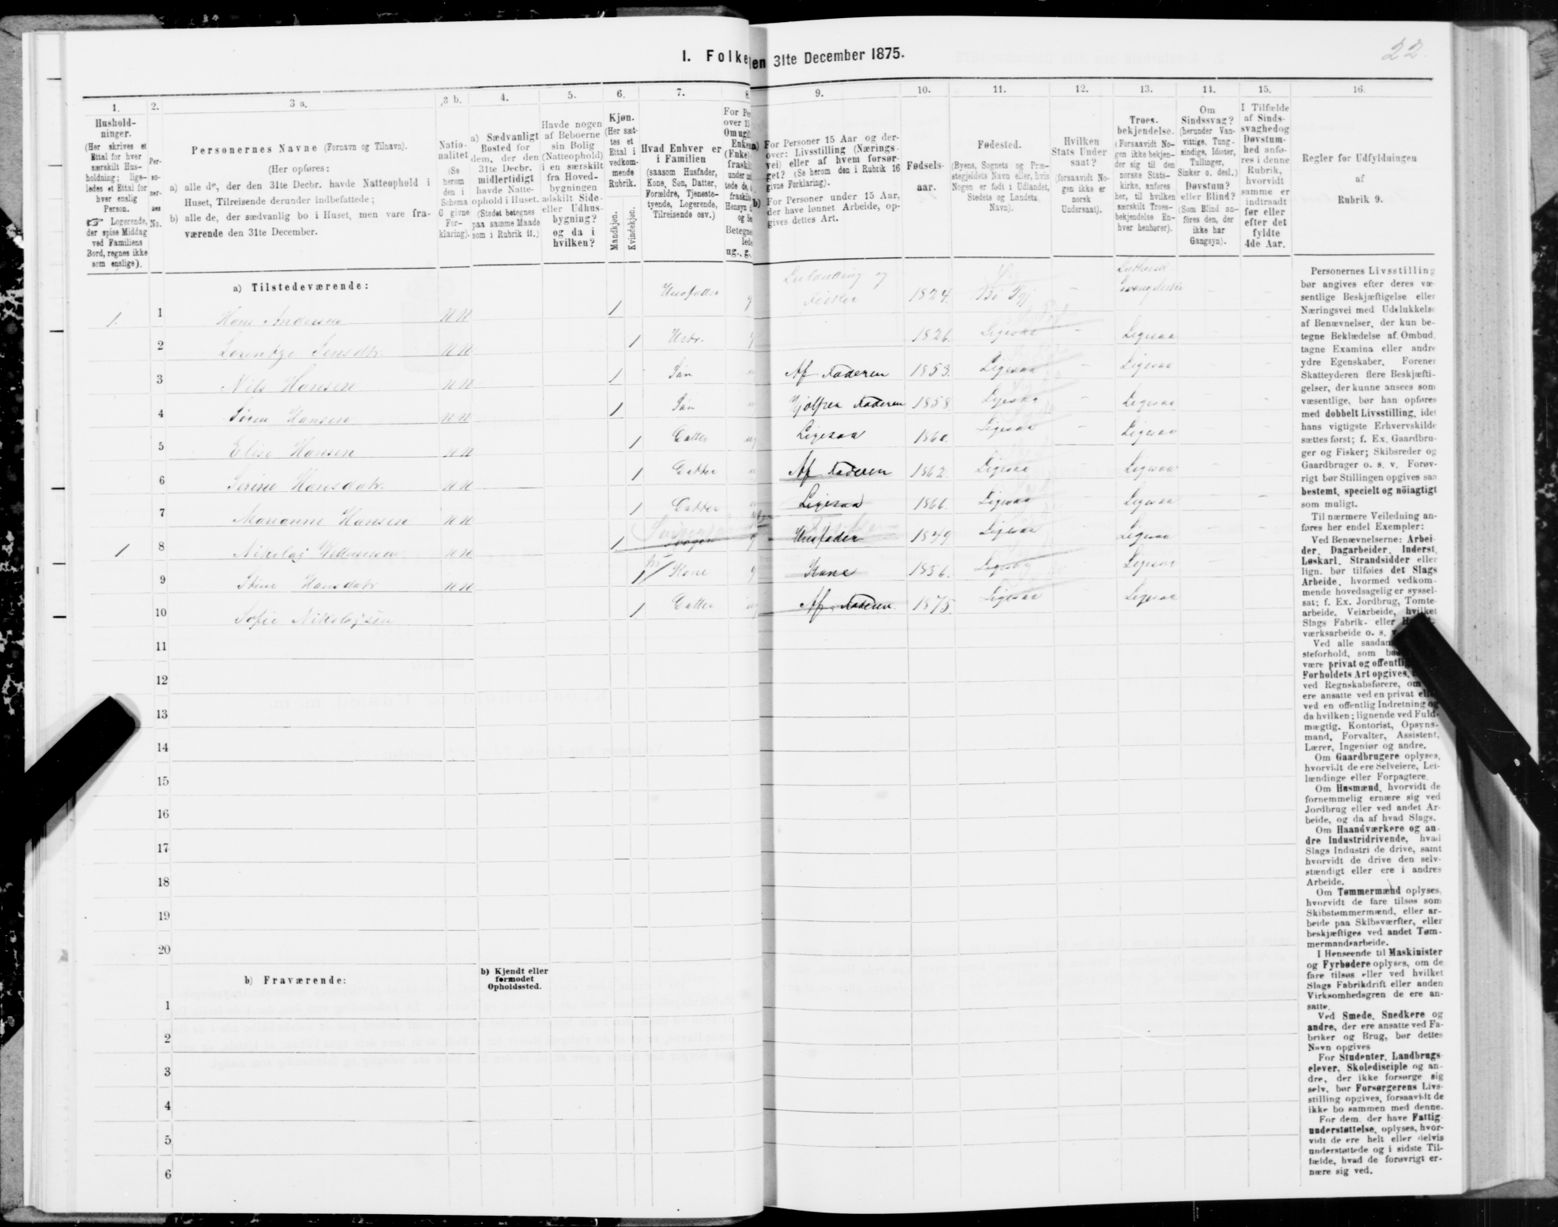 I. Folke
en 31te December 1875.
22.
1.
2.
3 a.
3 b.
4.
5.
6.
7.
8
9.
10.
11.
12.
13.
14.
15.
16.
Hushold-
ninger.
(Her skrives et
Ettal for hver
særskilt Hus-
holdning; lige-
ledes et Ettal for
hver enslig
Person.
Logerende,
der spise Middag
ved Familiens
Bord, regnes ikke
som enslige).
Per-
so-
ner-
nes
No.
Personernes Navne (Fornavn og Tilnavn).
(Her opføres:
a) alle de, der den 31te Decbr. havde Natteophold i
Huset, Tilreisende derunder indbefattede;
b) alle de, der sædvanlig bo i Huset, men vare fra-
værende den 31te December.
Natio-
nalitet
(Se
herom
den i
Schema
G givne
For-
klaring).
a) Sædvanligt
Bosted for
dem, der den
31te Decbr.
midlertidigt
havde Natte-
ophold i Huset.
(Stedet betegnes
paa samme Maade
som i Rubrik 11.)
Havde nogen
af Beboerne
sin Bolig
(Natteophold)
i en særskilt
fra Hoved-
bygningen
adskilt Side-
eller Udhus-
bygning?
og da i
hvilken?
Kjøn.
(Her sæt-
tes et
Ettal i
vedkom-
mende
Rubrik.
Mandkjøn.
Kvindekjøn.
Hvad Enhver er
i Familien
(saasom Husfader,
Kone, Søn, Datter,
Forældre, Tjeneste-
tyende, Logerende,
Tilreisende osv.)
For Pe
over 15
Om ugi
Enke
(Enke
fraskil
under
tede de,
fraskil
Hensyn
og Se
Betegne
lede
ug., g.
a)
For Personer 15 Aar og der-
over: Livsstilling (Nærings-
vei) eller af hvem forsør-
get? (Se herom den i Rubrik 16
givne Forklaring).
b)
For Personer under 15 Aar,
der have lønnet Arbeide, op-
gives dettes Art.
Fødsels-
aar.
Fødested.
(Byens, Sognets og Præ-
stegjeldets Navn eller, hvis
Nogen er født i Udlandet,
Stedets og Landets
Navn).
Hvilken
Stats Under
saat?
(forsaavidt No-
gen ikke er
norsk
Undersaat).
Troes-
bekjendelse.
(Forsaavidt No-
gen ikke bekjen-
der sig til den
norske Stats-
kirke, anføres
her, til hvilken
særskilt Troes-
bekjendelse En-
hver henhører).
Om
Sindssvag?
(herunder Van-
vittige, Tung-
sindige, Idioter,
Tullinger,
Sinker o. desl.)
Døvstum?
eller Blind?
(Som Blind an-
føres den, der
ikke har
Gangsyn).
I Tilfælde
af Sinds-
svaghed og
Døvstum-
hed anfø-
res i denne
Rubrik,
hvorvidt
samme er
indtraadt
før eller
efter det
fyldte
4de Aar.
Regler for Udfyldningen
af
Rubrik 9.
a) Tilstedeværende:
1. 1 Hans Andersen NN 1 Husfader g Selveiende og Fisker 1824 Bø Pgj – Luthersk Evangeliske – –
2 Lorentze Jensdtr NN 1 Hstr. g 1826 Ligesaa – Ligesaa – –
3 Nils Hansen NN 1 Søn Af Faderen 1853 Ligesaa – Ligesaa – –
4 Sören Hansen NN 1 Søn Hjælper Faderen 1858 Ligesaa – Ligesaa – –
5 Elise Hansen NN 1 Datter ug Ligesaa 1860 Ligesaa – Ligesaa – –
6 Serine Hansdatr. NN 1 Datter Af Faderen 1862 Ligesaa Ligesaa – –
7 Marianne Hansen NN 1 Datter Ligesaa 1866 Ligesaa Ligesaa – –
1 8 Nikolaj Pedersen NN 1 g Husfader 1849 Ligesaa Ligesaa – –
9 Hansdatr NN 1 Kone g Kone 1856 Ligesaa Ligesaa – –
10 Sofie Nikolajsen 1 Datter ug Af Faderen 1875 Ligesaa Ligesaa – –
11
12
13
14
15
16
17
18
19
20
b) Fraværende:
b) Kjendt eller
formodet
Opholdssted.
1
2
3
4
5
6
Personernes Livsstilling
bør angives efter deres væ-
sentlige Beskjæftigelse eller
Næringsvei med Udelukkelse
af Benævnelser, der kun be-
tegne Beklædelse af Ombud,
tagne Examina eller andre
ydre Egenskaber, Forener
Skatteyderen flere Beskjæfti-
gelser, der kunne ansees som
væsentlige, bør han opføres
med dobbelt Livsstilling, idet
hans vigtigste Erhvervskilde
sættes først; f. Ex. Gaardbru-
ger og Fisker; Skibsreder og
Gaardbruger o. s. v. Forøv-
rigt bør Stillingen opgives saa
bestemt, specielt og nøiagtigt
som muligt.
Til nærmere Veiledning an-
føres her endel Exempler:
Ved Benævnelserne: Arbei-
der, Dagarbeider, Inderst,
Løskarl, Strandsidder eller
lign. bør tilføies det Slags
Arbeide, hvormed vedkom-
mende hovedsagelig er syssel-
sat; f. Ex. Jordbrug, Tomte-
arbeide, Veiarbeide, hvilket
Slags Fabrik- eller
værksarbeide o. s.
Ved alle saadan
steforhold, som
være privat og offentli
Forholdets Art opgives,
ved Regnskabsførere, om
ere ansatte ved en privat
ved en offentlig Indretning og
da hvilken; lignende ved Fuld-
mægtig, Kontorist, Opsyns-
mand, Forvalter, Assistent,
Lærer, Ingeniør og andre.
Om Gaardbrugere oplyses,
hvorvidt de ere Selveiere, Lei-
lændinge eller Forpagtere.
Om Husmænd, hvorvidt de
fornemmelig ernære sig ved
Jordbrug eller ved andet Ar-
beide, og da af hvad Slags.
Om Haandværkere og an-
dre Industridrivende, hvad
Slags Industri de drive, samt
hvorvidt de drive den selv-
stændigt eller ere i andres
Arbeide.
Om Tømmermænd oplyses,
hvorvidt de fare tilsøs som
Skibstømmermænd, eller ar-
beide paa Skibsværfter, eller
beskjæftiges ved andet Tøm-
mermandsarbeide.
I Henseende til Maskinister
og Fyrbødere oplyses, om de
fare tilsøs eller ved hvilket
Slags Fabrikdrift eller anden
Virksomhedsgren de ere an-
satte.
Ved Smede, Snedkere og
andre, der ere ansatte ved Fa-
briker og Brug, bør dettes
Navn opgives
For Studenter, Landbrugs-
elever, Skoledisciple og an-
dre, der ikke forsørge sig
selv, bør Forsørgerens Livs-
stilling opgives, forsaavidt de
ikke bo sammen med denne.
For dem, der have Fattig-
understøttelse, oplyses, hvor-
vidt de ere helt eller delvis
understøttede og i sidste Til-
fælde, hvad de forøvrigt er-
nære sig ved.